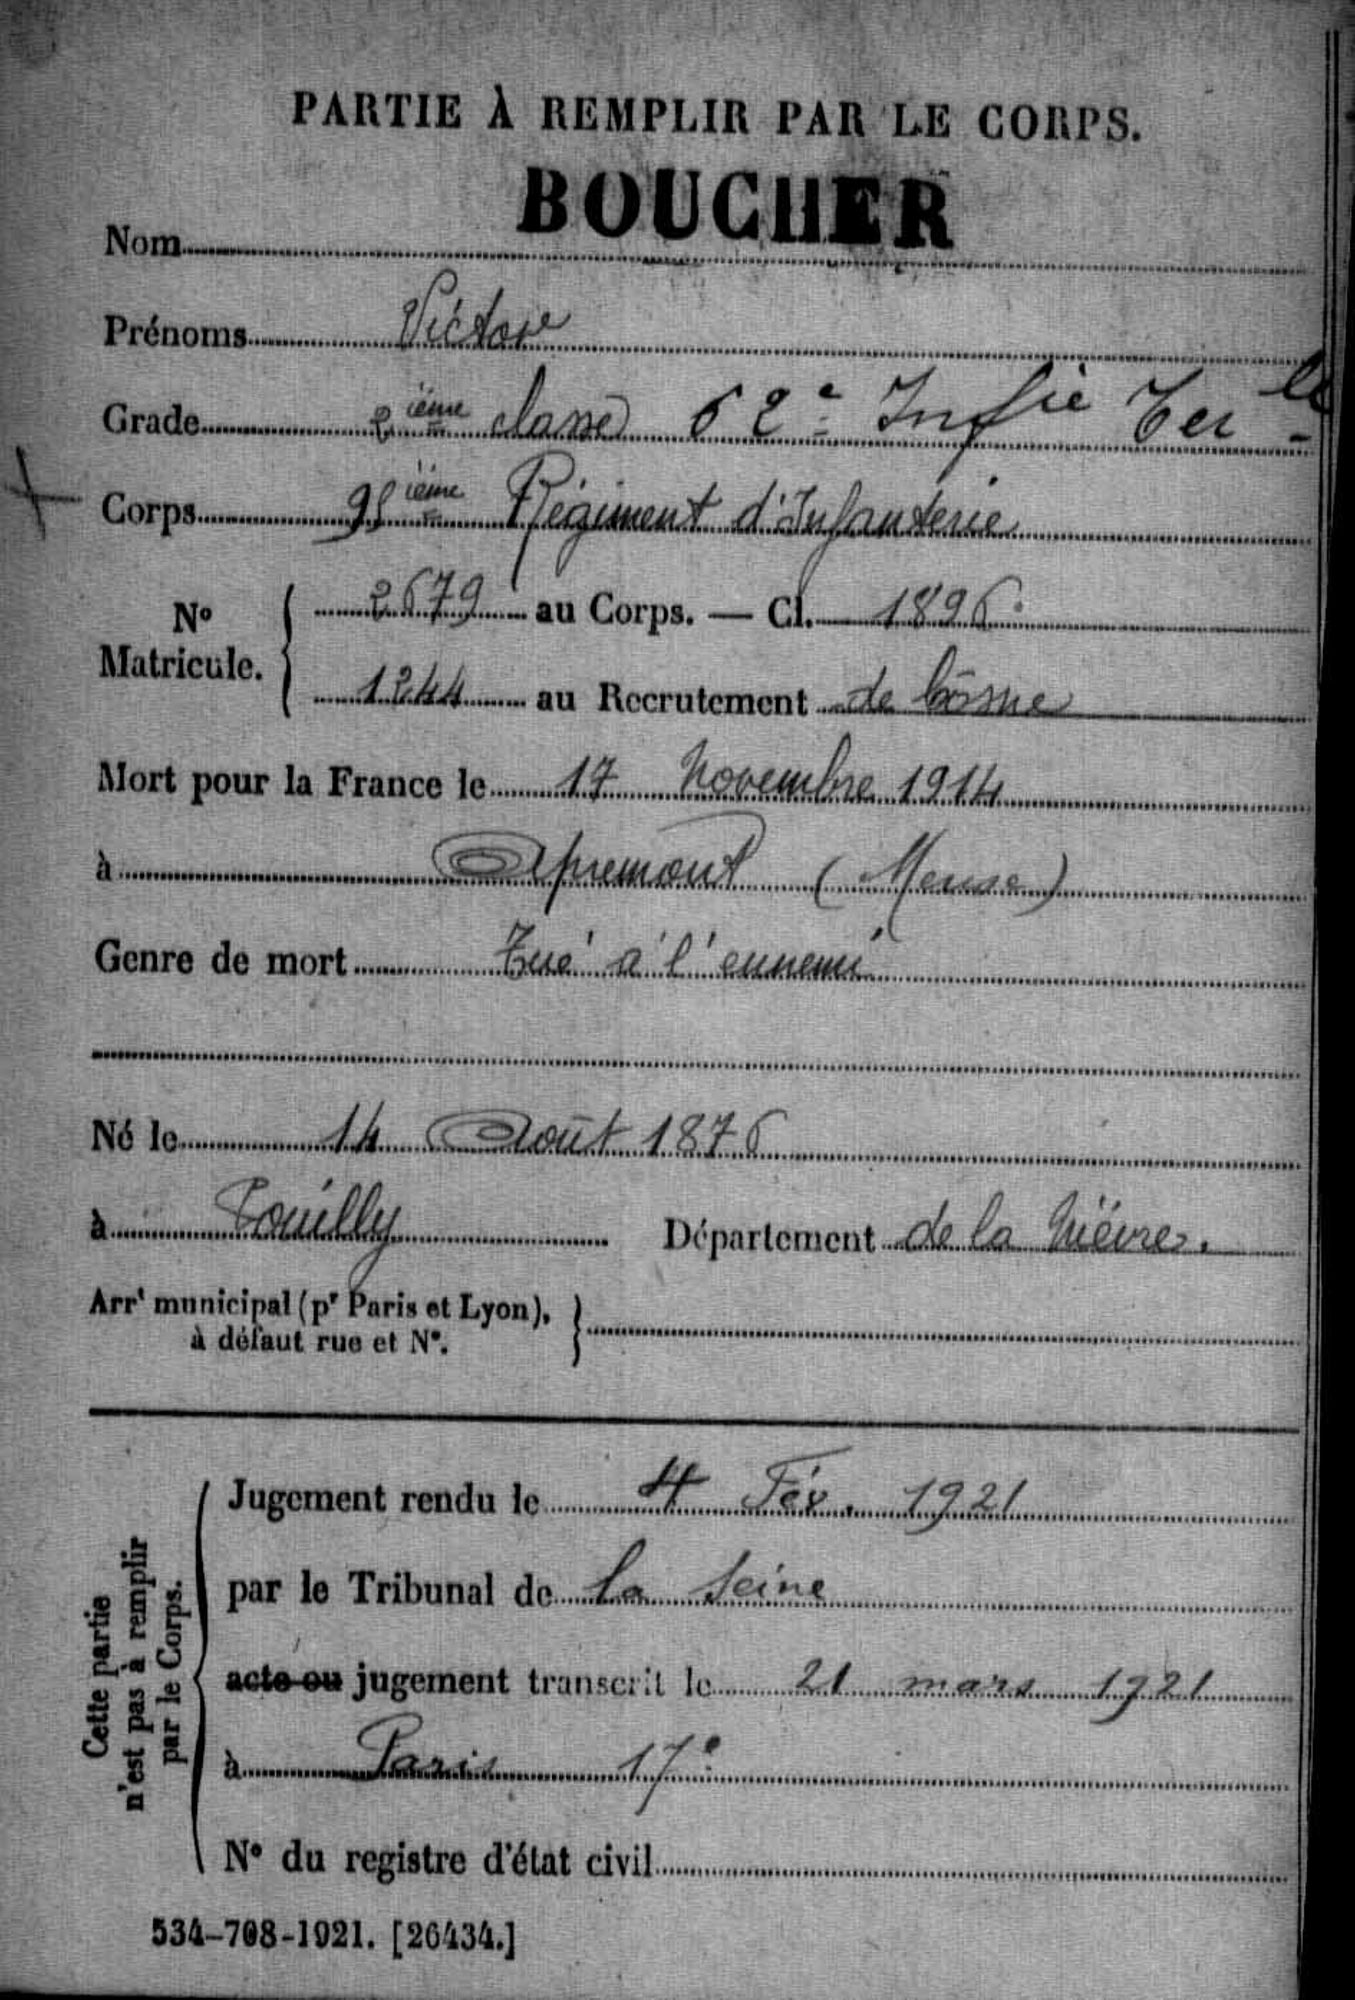 PARTIE À REMPLIR PAR LE CORPS.
Nom BOUCHER
Prénoms Victor
Grade 2ième classe 62e Infie Terle
Corps 95ième Régiment d'Infanterie
No Matricule. 2679 au Corps. — Cl. 1896
1244 au Recrutement de Cosne
Mort pour la France le 17 Novembre 1914
à Apremont (Meuse)
Genre de mort Tué à l'ennemi
Né le 14 Août 1876
à Pouilly Département de la Nièvre.
Arrt municipal (pr Paris et Lyon),
à défaut rue et No.
Cette partie
n'est pas à remplir
par le Corps.
Jugement rendu le 4 Fév. 1921
par le Tribunal de la Seine
acte ou jugement transcrit le 21 mars 1921
à Paris 17e
No du registre d'état civil
534-708-1921. [26434.]